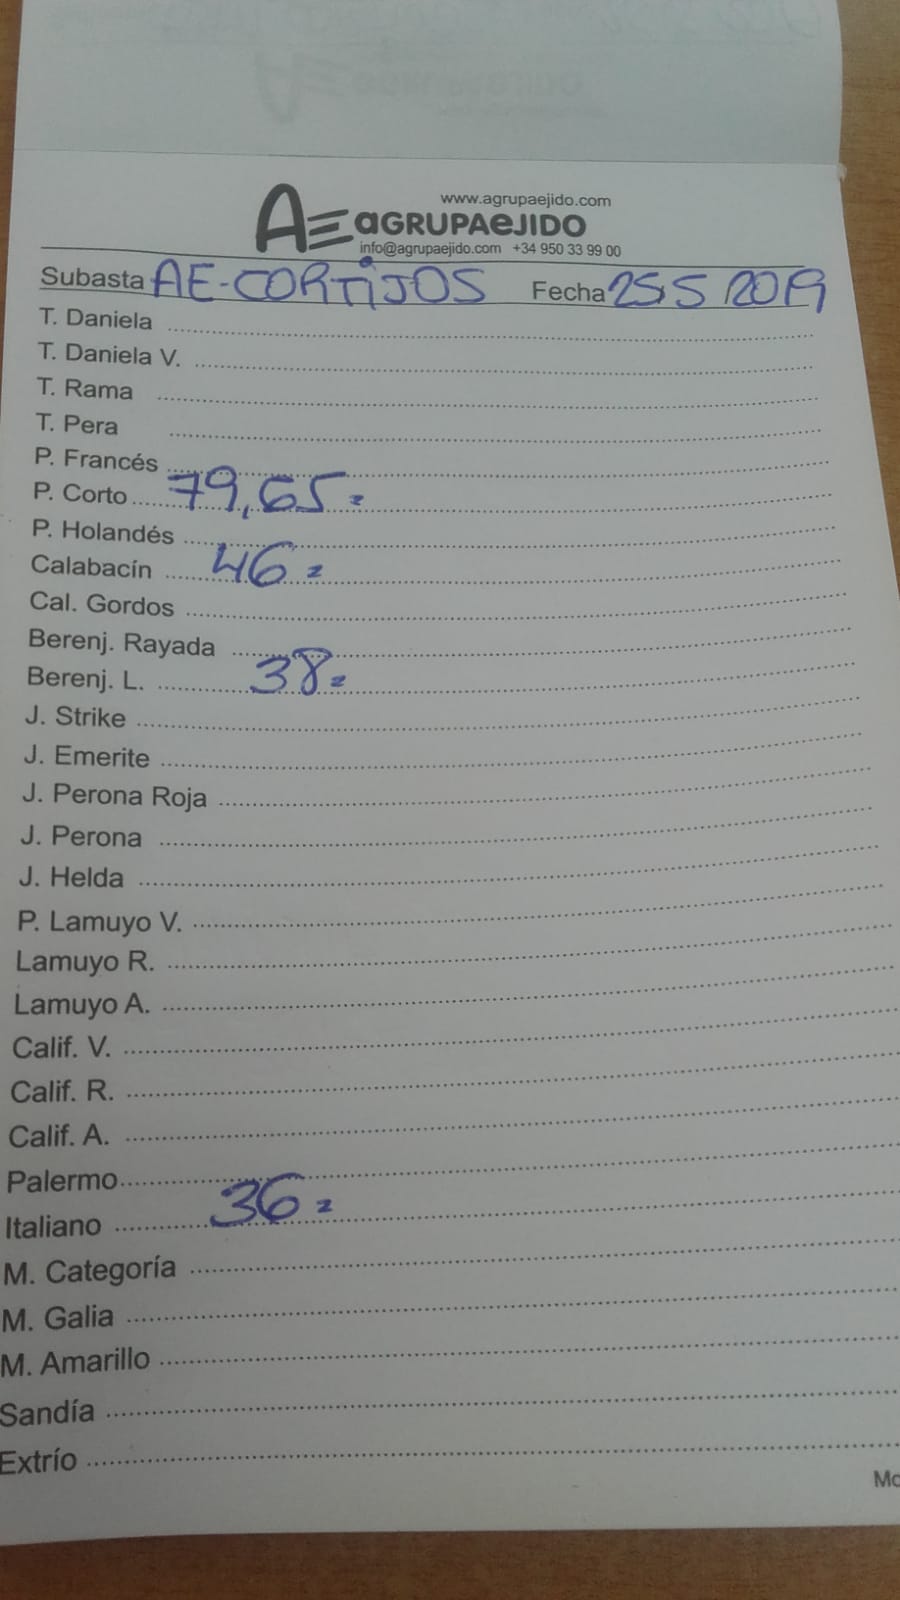 www.agrupaejido.com
AE AGRUPAEJIDO
info@agrupaejido.com +34 950 33 99 00
Subasta AE-CORTIJOS Fecha 25 5 2019
T. Daniela
T. Daniela V.
T. Rama
T. Pera
P. Francés
P. Corto 79,65=
P. Holandés
Calabacín 46=
Cal. Gordos
Berenj. Rayada
Berenj. L. 38=
J. Strike
J. Emerite
J. Perona Roja
J. Perona
J. Helda
P. Lamuyo V.
Lamuyo R.
Lamuyo A.
Calif. V.
Calif. R.
Calif. A.
Palermo
Italiano 36=
M. Categoría
M. Galia
M. Amarillo
Sandía
Extrío